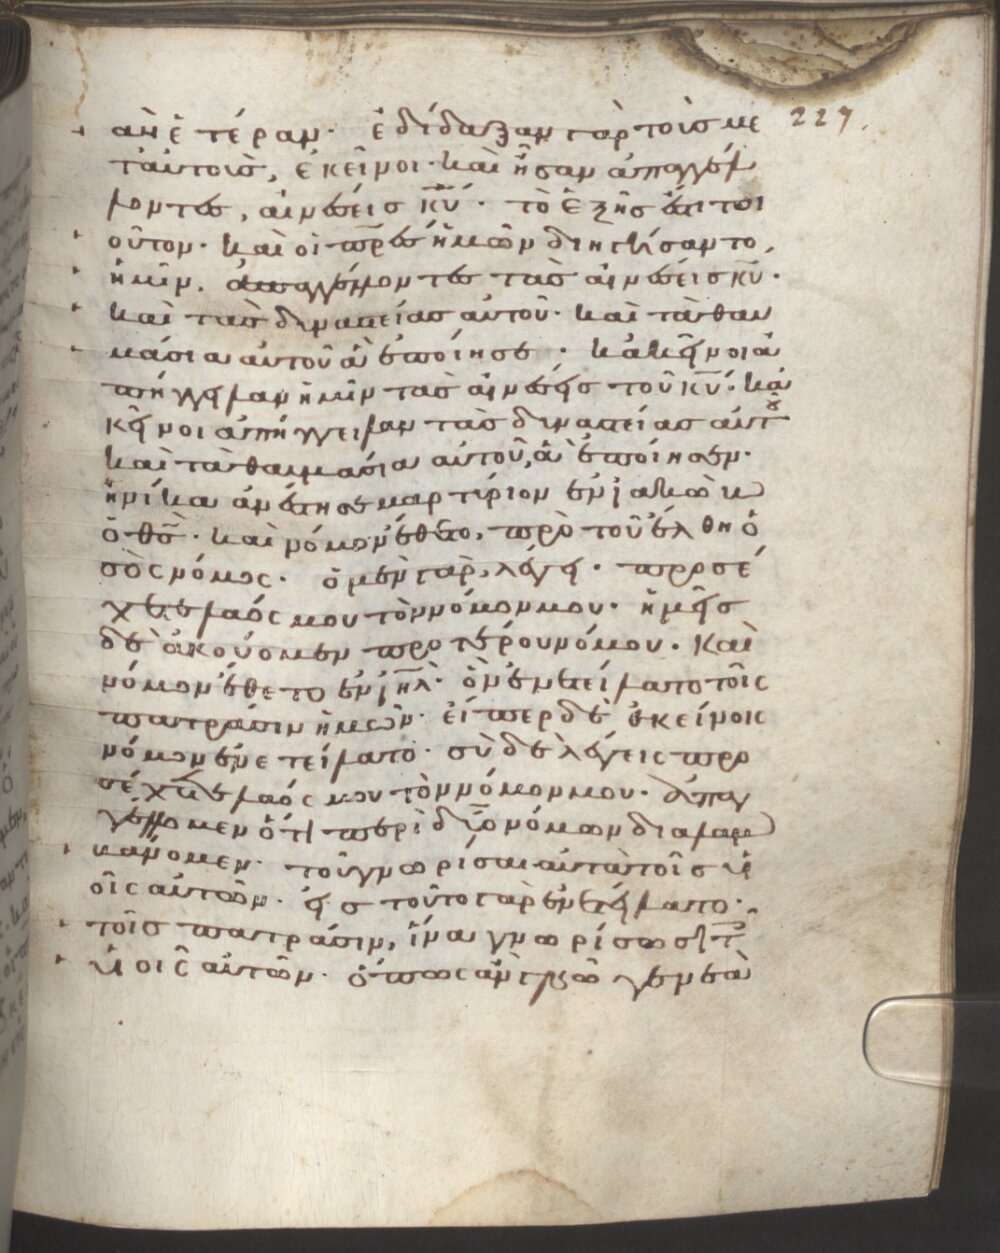 ἀν ἑτέραν· ἐδίδαξαν γὰρ τοὺς με 227.
τ' αὐτοὺς, ἐκεῖνοι· καὶ ἦσαν ἀπαγγέλ
λοντες, αἰνέσεις κ̅υ̅· τὸ ἑξῆς ἐπὶ τοι
οῦτον· καὶ οἱ π̅ρ̅ε̅ς ἡμῶν διηγήσαντο,
ἡμῖν. ἀπαγγέλλοντες τὰς αἰνέσεις κ̅υ̅·
καὶ τὰς δυναστείας αὐτοῦ· καὶ τὰ θαυ
μάσια αὐτοῦ ἃ ἐποίησε· κἀκεῖνοι ἀ
πήγγειλαν ἡμῖν τὰς αἰνέσεις τοῦ κ̅υ̅· κἀ
κεῖνοι ἀπήγγειλαν τὰς δυναστείας αὐτοῦ
καὶ τὰ θαυμάσια αὐτοῦ, ἃ ἐποίησεν·
ἡνίκα ἀνέστησε μαρτύριον ἐν ἰακὼβ
ὁ θ̅ς̅· καὶ νόμον ἔθετο, πρὸ τοῦ ἐλθη ὁ
σὸς νόμος· ὁ μὲν γὰρ, λέγει· προσέ
χετε λαός μου τὸν νόμον μου· ἡμεῖς
δὲ ἀκούομεν προτέρου νόμου. καὶ
νόμον ἔθετο ἐν ἰ̅η̅λ̅· ὃν ἐνετείλατο τοῖς
πατράσιν ἡμῶν· εἴπερ δὲ ἐκείνοις
νόμον ἐνετείλατο· σὺ δὲ λέγεις προ
σέχετε λαός μου τὸν νόμον μου· ἀπαγ
γέλλομεν ὅτι περὶ δύο νόμων διαλαμ
βάνομεν· τοῦ γνωρίσαι αὐτὰ τοῖς υἱ
οῖς αὐτῶν· εἰς τοῦτο γὰρ ἐνετείλατο·
τοῖς πατράσιν, ἵνα γνωρίσωσι τ
υἱοῖς αὐτῶν· ὅπως ἂν γνῶ γενεὰ